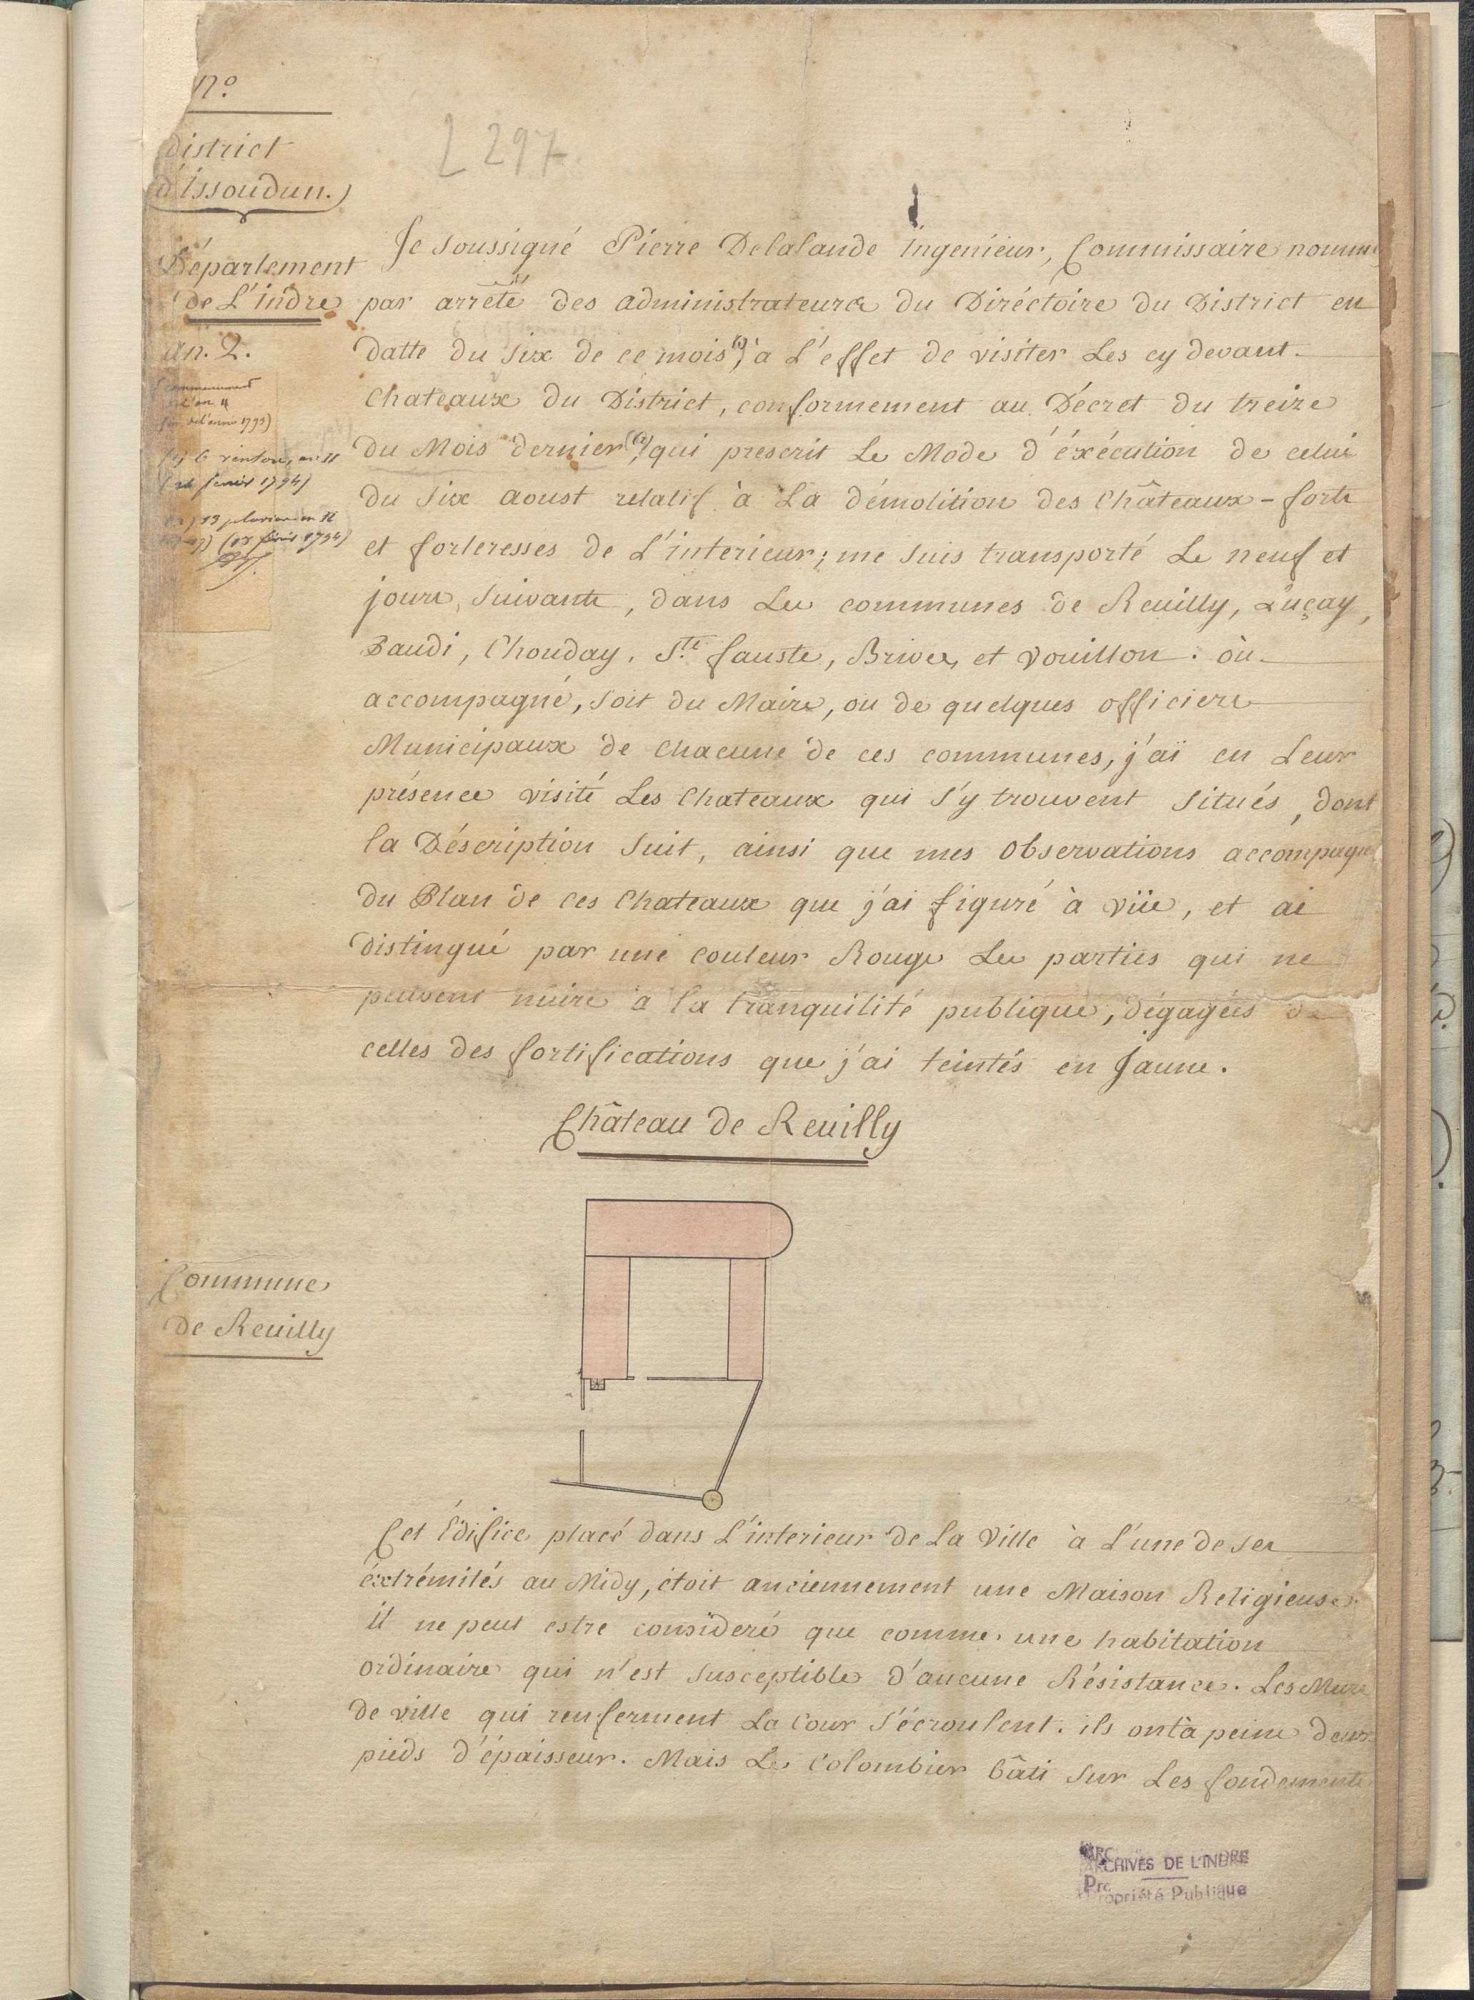 N.o
L 297
District
d'Issoudun.
Département
de L'indre
an. 2.
(1) 6 ventose, an II
(24 fevrier 1794)
(2) 13 pluviose an II
(1er février 1794)
Je soussigné Pierre Delalande ingenieur, Commissaire nommé
par arrêté des administrateurs du Diréctoire du District en
datte du six de ce mois(1), à L'effet de visiter Les cy devant
Chateaux du District, conformement au Décret du treize
du Mois dernier(2), qui prescrit Le Mode d'éxécution de celui
du six aoust relatif à La démolition des Châteaux-forts
et forteresses de L'interieur; me suis transporté Le neuf et
jours suivants, dans Les communes de Reuilly, Luçay,
Baudi, Chouday, Ste fauste, Brives, et Vouillon. où
accompagné, soit du Maire, ou de quelques officiers
Municipaux de chacune de ces communes, j'ai en Leur
présence visité Les Chateaux qui s'y trouvent situés, dont
la Déscription suit, ainsi que mes observations accompagné
du Plan de ces Chateaux que j'ai figuré à vüe, et ai
distingué par une couleur Rouge Les parties qui ne
peuvent nuire à la tranquilité publique, dégagées de
celles des fortifications que j'ai teintés en Jaune.
Château de Reuilly
Commune
de Reuilly
Cet Édifice placé dans L'interieur de La Ville à L'une de ses
éxtrémités au Midy, étoit anciennement une Maison Religieuse.
il ne peut estre consideré que comme une habitation
ordinaire qui n'est susceptible d'aucune Résistance. Les Murs
de ville qui renferment La Cour s'écroulent. ils ont à peine deux
pieds d'épaisseur. Mais Le Colombier bâti sur Les fondements
ARCHIVES DE L'INDRE
Propriété Publique